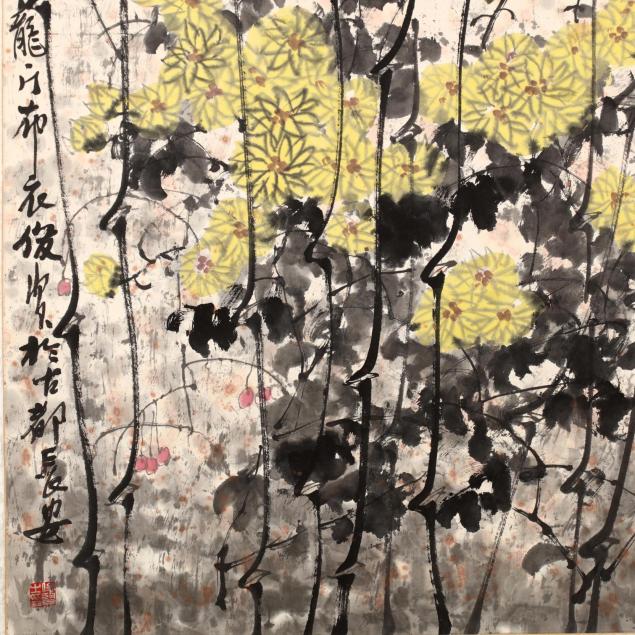 龍门布衣俊贤於古都長安